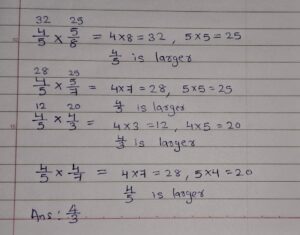 32 25
4/5 × 5/8 = 4×8=32, 5×5=25
4/5 is larger
28 25
4/5 × 5/7 = 4×7=28, 5×5=25
4/5 is larger
12 20
4/5 × 4/3 = 4×3=12, 4×5=20
4/3 is larger
4/5 × 4/7 = 4×7=28, 5×4=20
4/5 is larger
Ans: 4/3